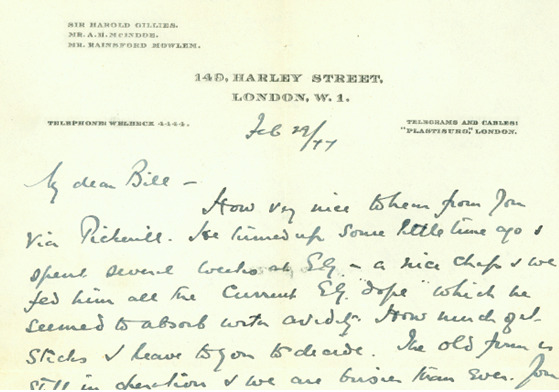 SIR HAROLD GILLIES.
MR. A. H. MCINDOE.
MR. RAINSFORD MOWLEM.
149, HARLEY STREET,
LONDON, W. 1.
TELEPHONE: WELBECK 4444.
TELEGRAMS AND CABLES:
"PLASTISURG," LONDON.
Feb 29/44
My dear Bill –
How very nice to hear from you
via Pickerill. He turned up some little time ago &
spent several weeks at E.G. – a nice chap & we
fed him all the current E.G. "dope" which he
seemed to absorb with avidity. How much of it
sticks I leave to you to decide. The old firm is
still in operation & we are busier than ever. You